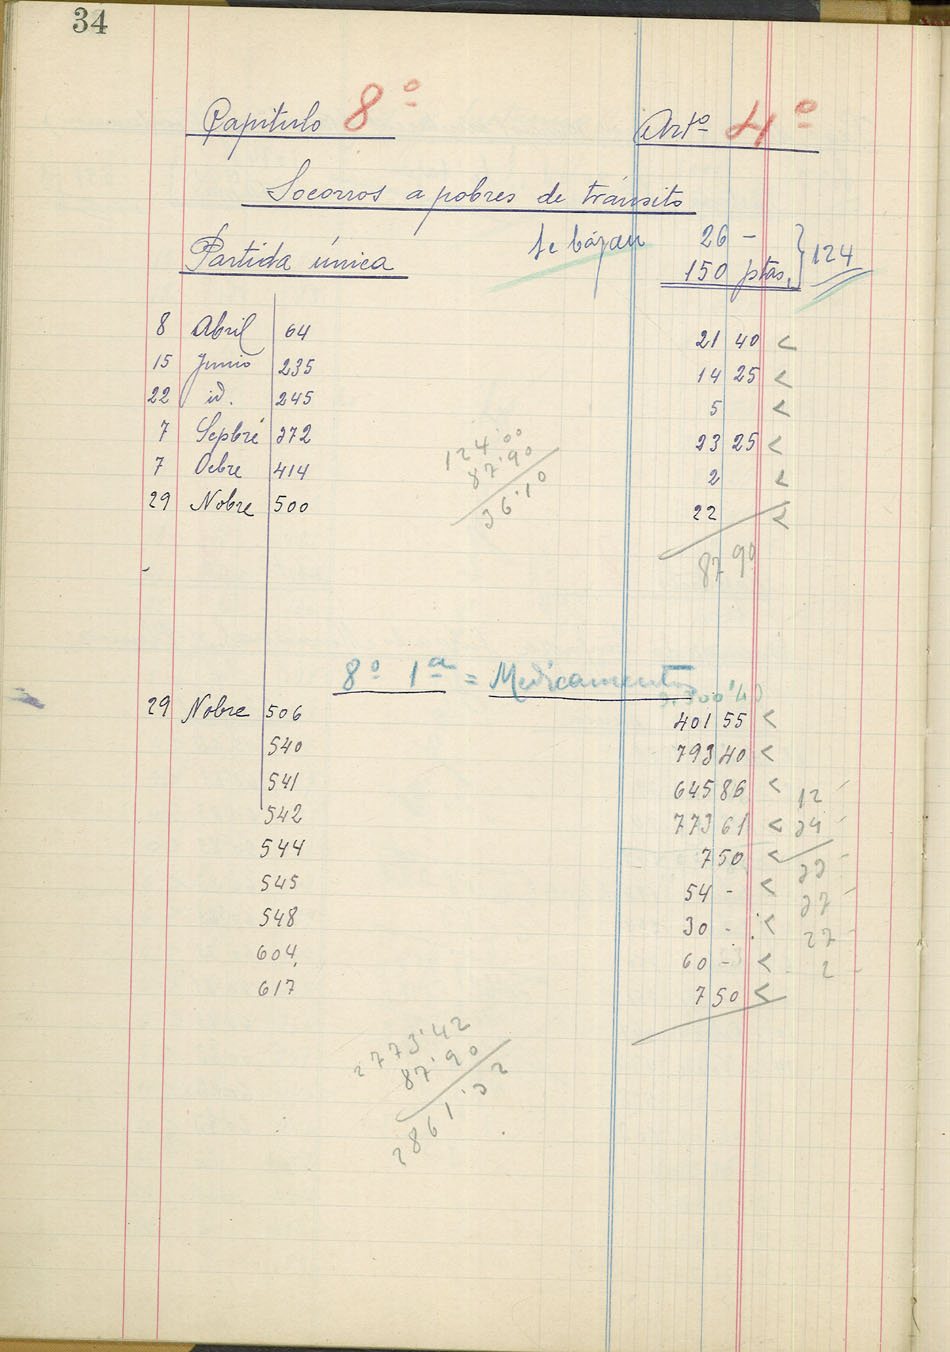 34
Capítulo 8º Artº 4º
Socorros a pobres de tránsito
Partida única Se bajan 26 -
150 ptas. } 124
8 Abril 64 21 40 <
15 Junio 235 14 25 <
22 id. 245 5 <
7 Sepbre 372 23 25 <
7 Ocbre 414 2 <
29 Nobre 500 22 <
124'00
87'90
36'10
87 90
8º 1ª = Medicamentos
29 Nobre 506 401 55 <
540 793 40 <
541 645 86 < 12
542 773 61 < 24
544 7 50 <
545 54 - <
548 30 - < 27
604 60 - < 2
617 7 50 <
2773'42
87'90
2861'32